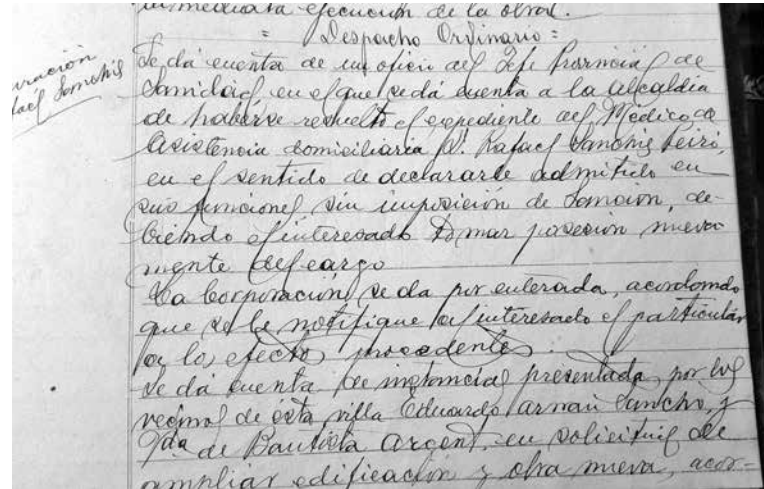 inmediata ejecución de la obra.
= Despacho Ordinario =
Se dá cuenta de un oficio del Jefe Provincial de
Sanidad en el que se dá cuenta a la Alcaldia
de haberse resuelto el expediente del Médico de
Asistencia domiciliaria D. Rafael Sanchis Peiró,
en el sentido de declararle admitido en
sus funciones sin imposición de Sanción, de-
biendo el interesado tomar posesión nueva
mente del cargo
La Corporación se da por enterada, acordando
que se le notifique al interesado el particular
a los efectos procedentes.
Se dá cuenta de instancias presentada por los
vecinos de ésta villa Eduardo Arnau Sancho, y
Vda de Bautista Argent, en solicitud de
ampliar edificación y obra nueva, acor=
ración
fael Sanchis